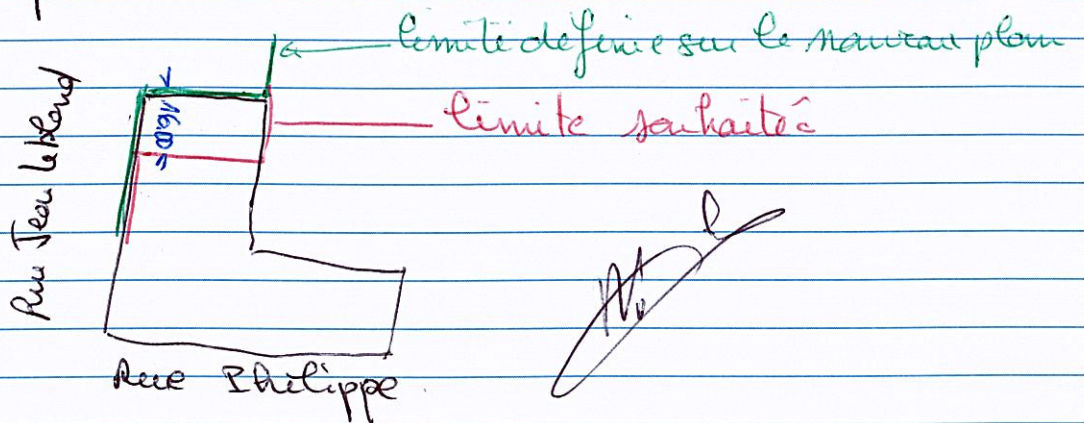 limite définie sur le nouveau plan
limite souhaitée
16,00
Rue Jean Leblond
Rue Philippe